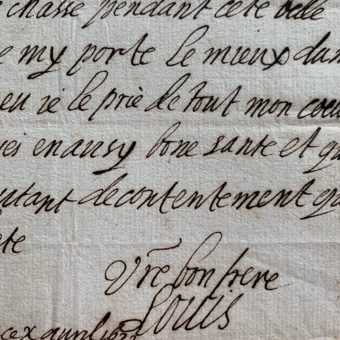 chasse pendant cete belle
e my porte le mieux du
ie le prie de tout mon coeu
en ausy bone sante et qu
utant de contentement q
ete
Vre bon frere
LOUIS
auril